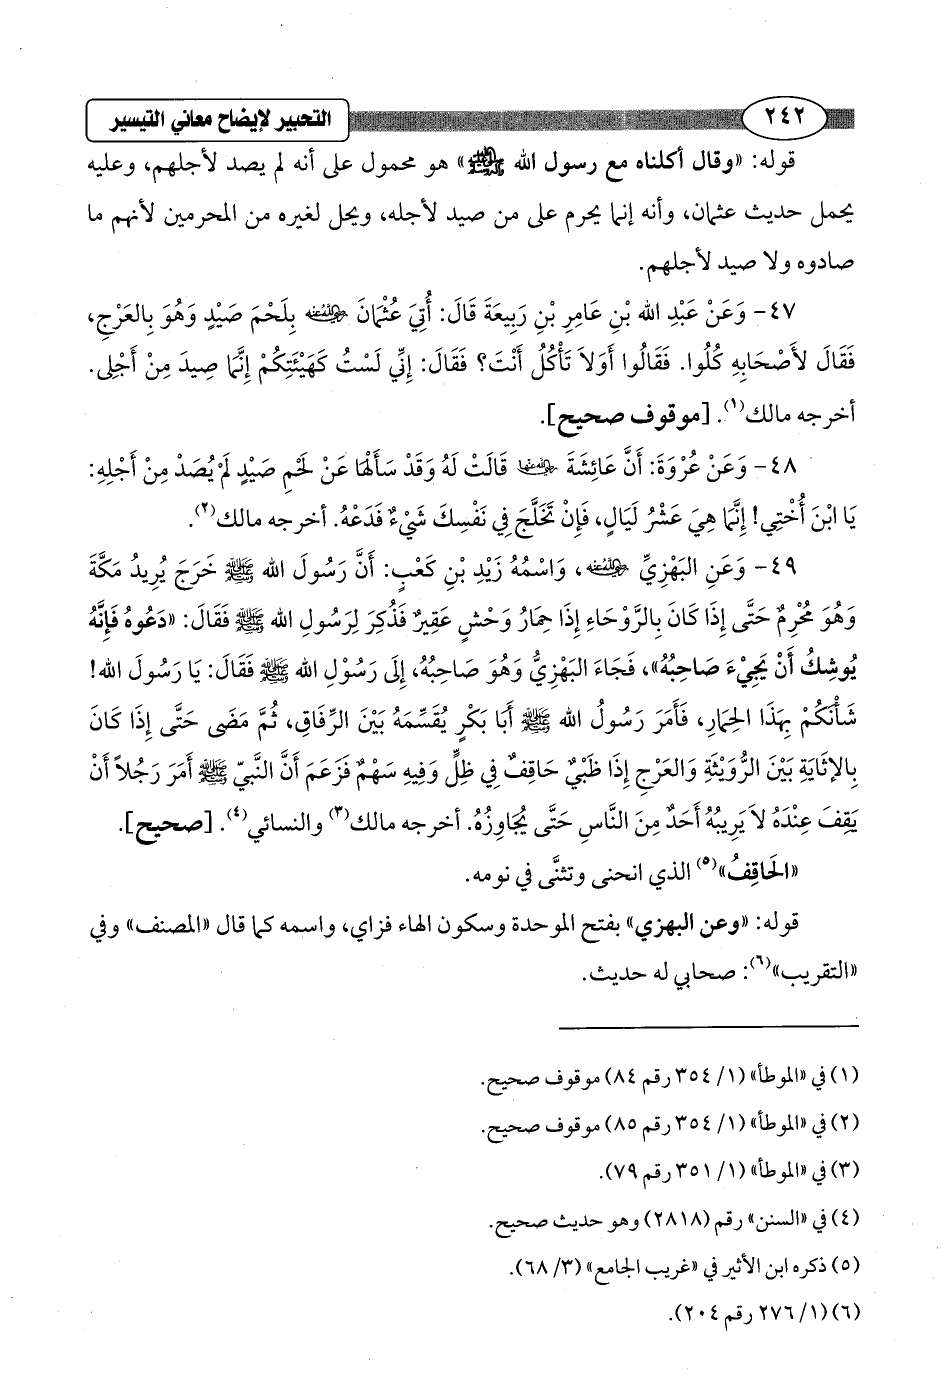 ٢٤٢
التحبير لإيضاح معاني التيسير
قوله: «وقال أكلناه مع رسول الله ﷺ» هو محمول على أنه لم يصد لأجلهم، وعليه
يحمل حديث عثمان، وأنه إنما يحرم على من صيد لأجله، ويحل لغيره من المحرمين لأنهم ما
صادوه ولا صيد لأجلهم.
٤٧- وَعَنْ عَبْدِ الله بْنِ عَامِرِ بْنِ رَبِيعَةَ قَالَ: أُتِيَ عُثْمَانَ رضي الله عنه بِلَحْمَ صَيْدٍ وَهُوَ بِالعَرْجِ،
فَقَالَ لأَصْحَابِهِ كُلُوا. فَقَالُوا أَوَلاَ تَأْكُلُ أَنْتَ؟ فَقَالَ: إِنِّي لَسْتُ كَهَيْئَتِكُمْ إِنَّمَا صِيدَ مِنْ أَجْلِى.
أخرجه مالك(١). [موقوف صحيح].
٤٨- وَعَنْ عُرْوَةَ: أَنَّ عَائِشَةَ رضي الله عنها قَالَتْ لَهُ وَقَدْ سَأَلَهَا عَنْ لَحْمِ صَيْدٍ لَمْ يُصَدْ مِنْ أَجْلِهِ:
يَا ابْنَ أُخْتِي! إِنَّمَا هِيَ عَشْرُ لَيَالٍ، فَإِنْ تَخَلَّجَ فِي نَفْسِكَ شَيْءٌ فَدَعْهُ. أخرجه مالك(٢).
٤٩- وَعَنِ البَهْزِيِّ رضي الله عنه، وَاسْمُهُ زَيْدِ بْنِ كَعْبٍ: أَنَّ رَسُولَ الله ﷺ خَرَجَ يُرِيدُ مَكَّةَ
وَهُوَ مُحْرِمٌ حَتَّى إِذَا كَانَ بِالرَّوْحَاءِ إِذَا حِمَارُ وَحْشٍ عَقِيرٌ فَذُكِرَ لِرَسُولِ الله ﷺ فَقَالَ: «دَعُوهُ فَإِنَّهُ
يُوشِكُ أَنْ يَجِيْءَ صَاحِبُهُ»، فَجَاءَ البَهْزِيُّ وَهُوَ صَاحِبُهُ، إِلَى رَسُوْلِ الله ﷺ فَقَالَ: يَا رَسُولَ الله!
شَأْنَكُمْ بِهَذَا الحِمَارِ، فَأَمَرَ رَسُولُ الله ﷺ أَبَا بَكْرٍ يُقَسِّمَهُ بَيْنَ الرِّفَاقِ، ثُمَّ مَضَى حَتَّى إِذَا كَانَ
بِالإِثَايَةِ بَيْنَ الرُّوَيْثَةِ وَالعَرْجِ إِذَا ظَبْيٌ حَاقِفٌ فِي ظِلٍّ وَفِيهِ سَهْمٌ فَزَعَمَ أَنَّ النَّبيّ ﷺ أَمَرَ رَجُلاً أَنْ
يَقِفَ عِنْدَهُ لاَ يَرِيبُهُ أَحَدٌ مِنَ النَّاسِ حَتَّى يُجَاوِزُهُ. أخرجه مالك(٣) والنسائي(٤). [صحيح].
«الحَاقِفُ»(٥) الذي انحنى وتثنَّى في نومه.
قوله: «وعن البهزي» بفتح الموحدة وسكون الهاء فزاي، واسمه كما قال «المصنف» وفي
«التقريب»(٦): صحابي له حديث.
(١) في «الموطأ» (١/ ٣٥٤ رقم ٨٤) موقوف صحيح.
(٢) في «الموطأ» (١/ ٣٥٤ رقم ٨٥) موقوف صحيح.
(٣) في «الموطأ» (١/ ٣٥١ رقم ٧٩).
(٤) في «السنن» رقم (٢٨١٨) وهو حديث صحيح.
(٥) ذكره ابن الأثير في «غريب الجامع» (٣/ ٦٨).
(٦) (١/ ٢٧٦ رقم ٢٠٤).